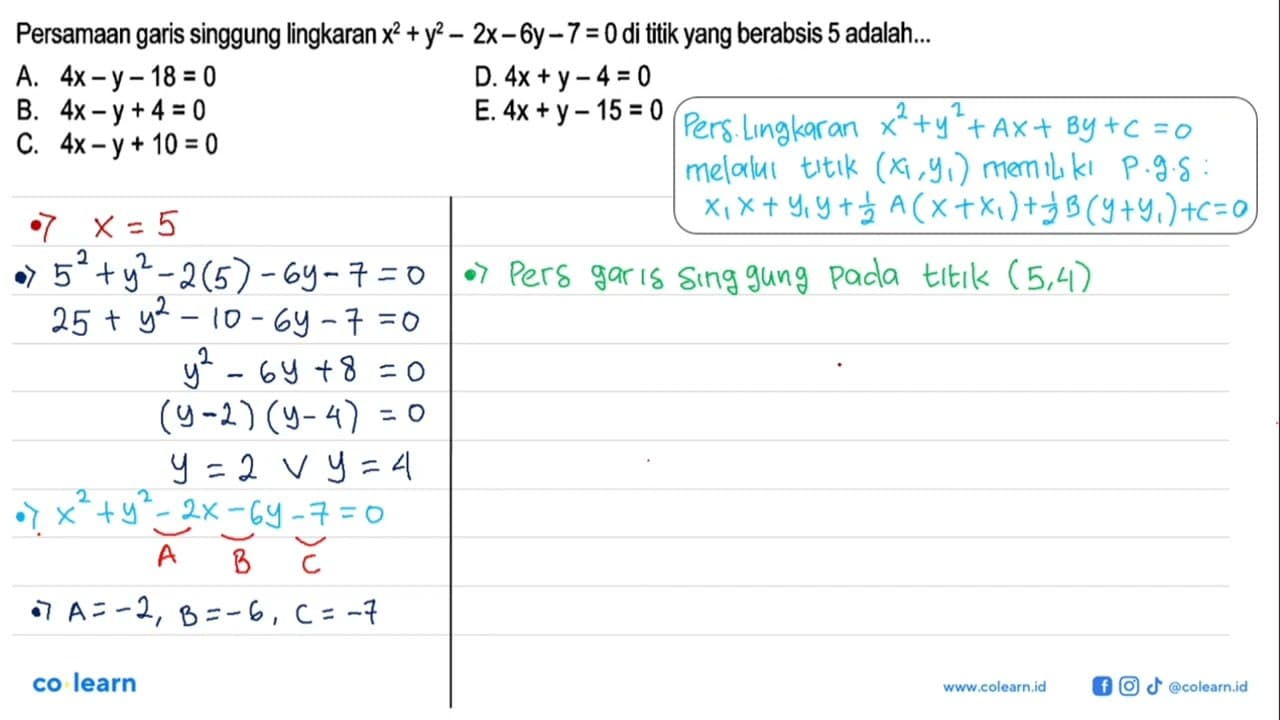 Persamaan garis singgung lingkaran x² + y² – 2x – 6y – 7 = 0 di titik yang berabsis 5 adalah...
A. 4x – y – 18 = 0
B. 4x – y + 4 = 0
C. 4x – y + 10 = 0
D. 4x + y – 4 = 0
E. 4x + y – 15 = 0
Pers. Lingkaran x² + y² + Ax + By + C = 0
melalui titik (x₁, y₁) memiliki P.g.s :
x₁x + y₁y + ½ A(x + x₁) + ½ B(y + y₁) + C = 0
x = 5
5² + y² – 2(5) – 6y – 7 = 0
25 + y² – 10 – 6y – 7 = 0
y² – 6y + 8 = 0
(y – 2)(y – 4) = 0
y = 2 ∨ y = 4
x² + y² – 2x – 6y – 7 = 0
A B C
A = –2, B = –6, C = –7
Pers garis singgung pada titik (5,4)
co learn
www.colearn.id
@colearn.id